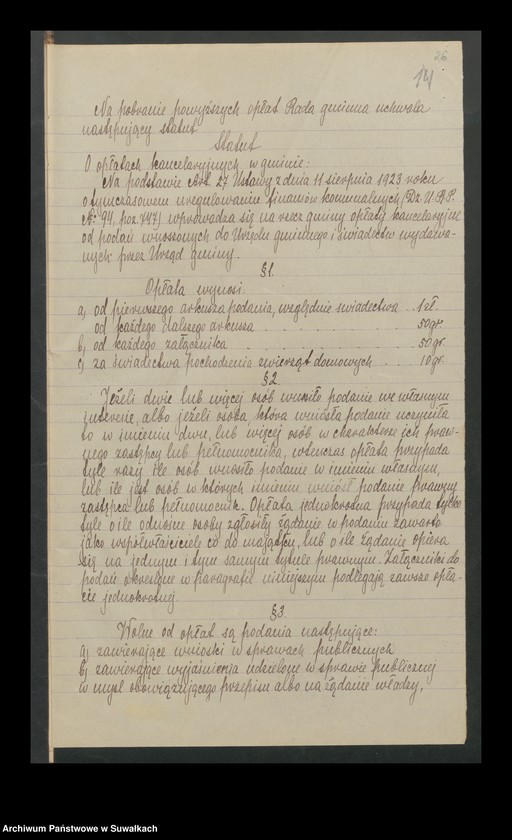 26
14
Na pobranie powyższych opłat Rada gminna uchwala
następujący statut
Statut
O opłatach kancelaryjnych w gminie:
Na podstawie Art. 27 Ustawy z dnia 11 sierpnia 1923 roku
o tymczasowem uregulowaniu finansów komunalnych (Dz. U. R.P.
Nr 94, poz. 747) wprowadza się na rzecz gminy opłaty kancelaryjne
od podań wnoszonych do Urzędu gminnego i świadectw wydawa-
nych przez Urząd gminy.
§ 1.
Opłata wynosi:
a) od pierwszego arkusza podania, względnie świadectwa .. 1 zł.
od każdego dalszego arkusza . . . . . . . 50 gr.
b) od każdego załącznika . . . . . . . . 50 gr.
c) za świadectwa pochodzenia zwierząt domowych . . . . 10 gr.
§ 2.
Jeżeli dwie lub więcej osób wniosło podanie we własnym
interesie, albo jeżeli osoba, która wniosła podanie uczyniła
to w imieniu dwu, lub więcej osób w charakterze ich praw-
nego zastępcy lub pełnomocnika, wtenczas opłata przypada
tyle razy ile osób wniosło podanie w imieniu własnym,
lub ile jest osób w których imieniu wniósł podanie prawny
zastępca lub pełnomocnik. Opłata jednokrotna przypada tylko
tyle o ile odnośne osoby zgłosiły żądanie w podaniu zawarte
jako współwłaściciele co do majątku, lub o ile żądanie opiera
się na jednym i tym samym tytule prawnym. Załączniki do
podań określone w paragrafie niniejszym podlegają zawsze opła-
cie jednokrotnej.
§ 3.
Wolne od opłat są podania następujące:
a) zawierające wnioski w sprawach publicznych
b) zawierające wyjaśnienia udzielone w sprawie publicznej
w myśl obowiązującego przepisu albo na żądanie władzy,
Archiwum Państwowe w Suwałkach